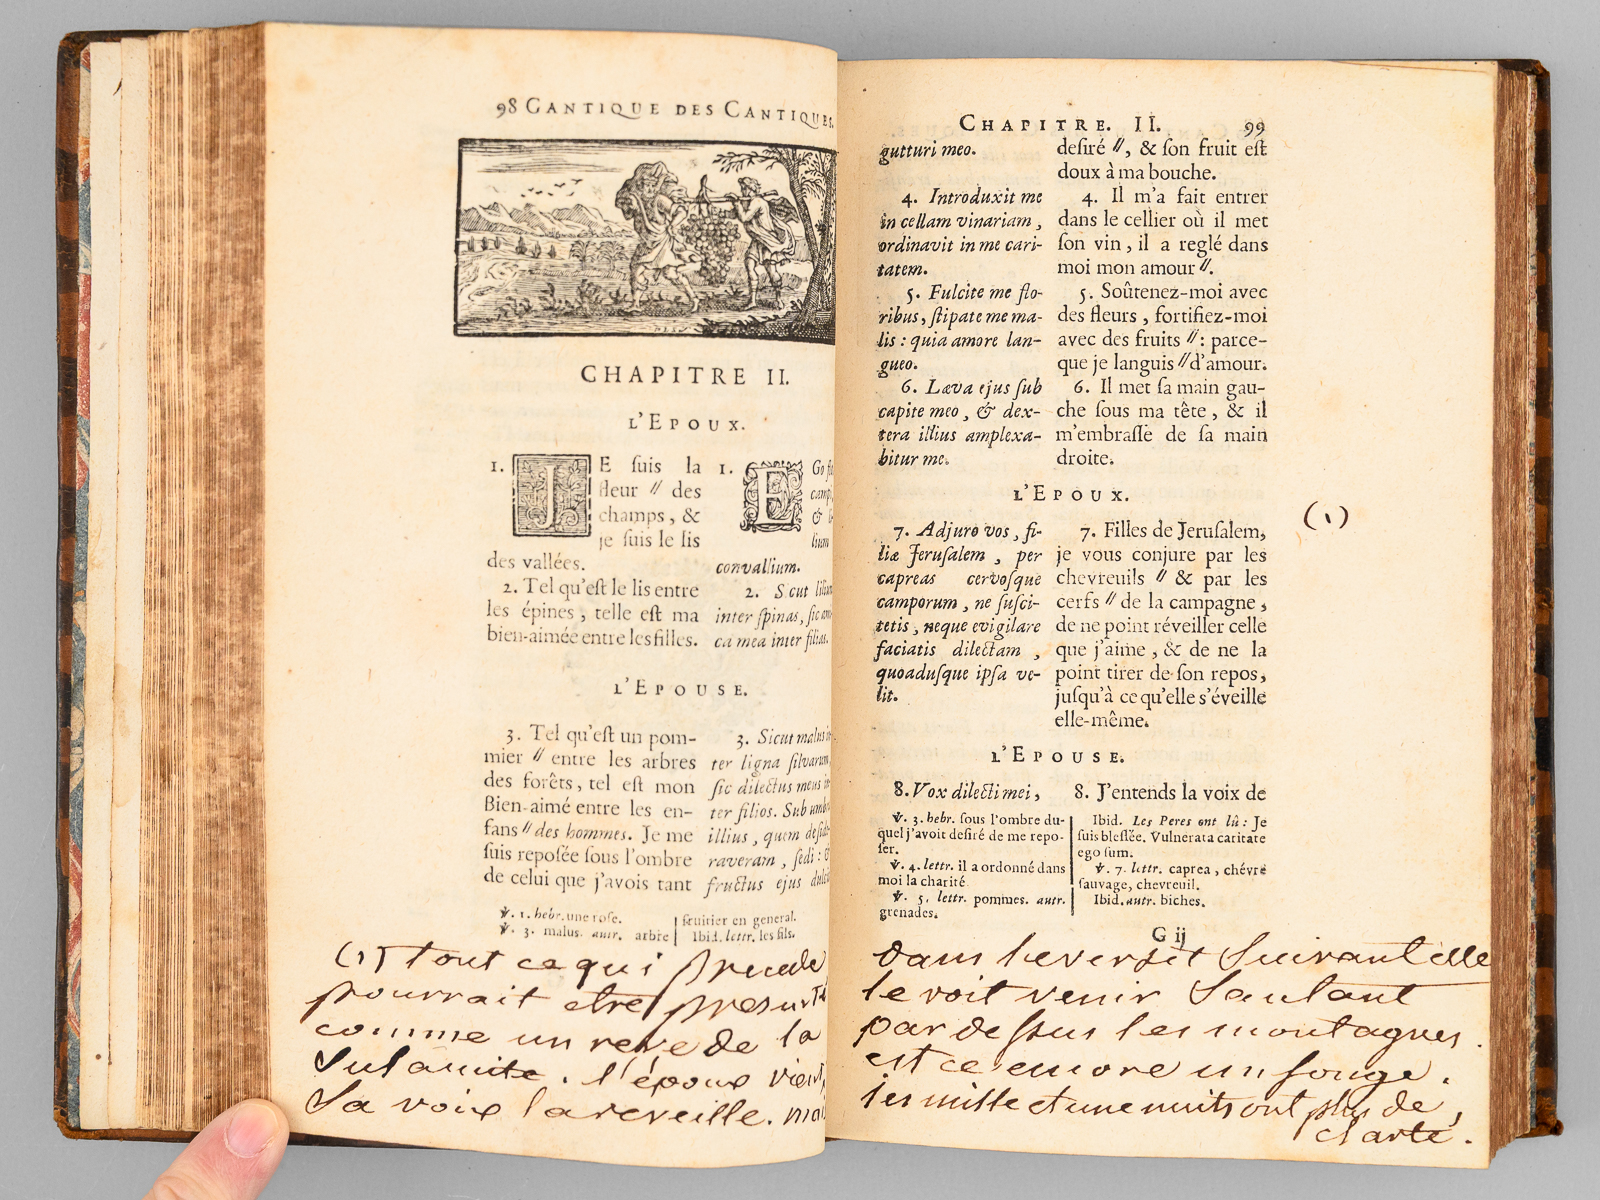 98 CANTIQUE DES CANTIQUES.
CHAPITRE II.
L'EPOUX.
1. JE ſuis la
fleur // des
champs, &
je ſuis le lis
des vallées.
2. Tel qu'eſt le lis entre
les épines, telle eſt ma
bien-aimée entre les filles.
1. EGo
&
convallium.
2. Sicut
inter ſpinas, ſic
ca mea inter filias.
L'EPOUSE.
3. Tel qu'eſt un pom-
mier // entre les arbres
des forêts, tel eſt mon
Bien-aimé entre les en-
fans // des hommes. Je me
ſuis repoſée ſous l'ombre
de celui que j'avois tant
3. Sicut malus
ter ligna ſilvarum,
ſic dilectus meus
ter filios. Sub
illius, quem
raveram, ſedi:
fructus ejus
℣. 1. hebr. une roſe.
℣. 3. malus. autr. arbre
fruitier en general.
Ibid. lettr. les fils.
(1) tout ce qui precede
pourrait etre
comme un reve de la
Sulamite. l'époux vient,
Sa voix la reveille. mai
CHAPITRE. II. 99
gutturi meo.
4. Introduxit me
in cellam vinariam,
ordinavit in me cari-
tatem.
5. Fulcite me flo-
ribus, ſtipate me ma-
lis: quia amore lan-
gueo.
6. Læva ejus ſub
capite meo, & dex-
tera illius amplexa-
bitur me.
deſiré //, & ſon fruit eſt
doux à ma bouche.
4. Il m'a fait entrer
dans le cellier où il met
ſon vin, il a reglé dans
moi mon amour //.
5. Soûtenez-moi avec
des fleurs, fortifiez-moi
avec des fruits //: parce-
que je languis // d'amour.
6. Il met ſa main gau-
che ſous ma tête, & il
m'embraſſe de ſa main
droite.
L'EPOUX.
(1)
7. Adjuro vos, fi-
liæ Jeruſalem, per
capreas cervoſque
camporum, ne ſuſci-
tetis, neque evigilare
faciatis dilectam,
quoaduſque ipſa ve-
lit.
7. Filles de Jeruſalem,
je vous conjure par les
chevreuils // & par les
cerfs // de la campagne,
de ne point réveiller celle
que j'aime, & de ne la
point tirer de ſon repos,
juſqu'à ce qu'elle s'éveille
elle-même.
L'EPOUSE.
8. Vox dilecti mei,
8. J'entends la voix de
℣. 3. hebr. ſous l'ombre du-
quel j'avoit deſiré de me repo-
ſer.
℣. 4. lettr. il a ordonné dans
moi la charité.
℣. 5. lettr. pommes. autr.
grenades.
Ibid. Les Peres ont lû: Je
ſuis bleſſée. Vulnerata caritate
ego ſum.
℣. 7. lettr. caprea, chévre
ſauvage, chevreuil.
Ibid. autr. biches.
G ij
dans le verset Suivant elle
le voit venir Sautant
par dessus les montagnes.
est ce encore un songe.
les mille et une nuits ont plus de
clarté.